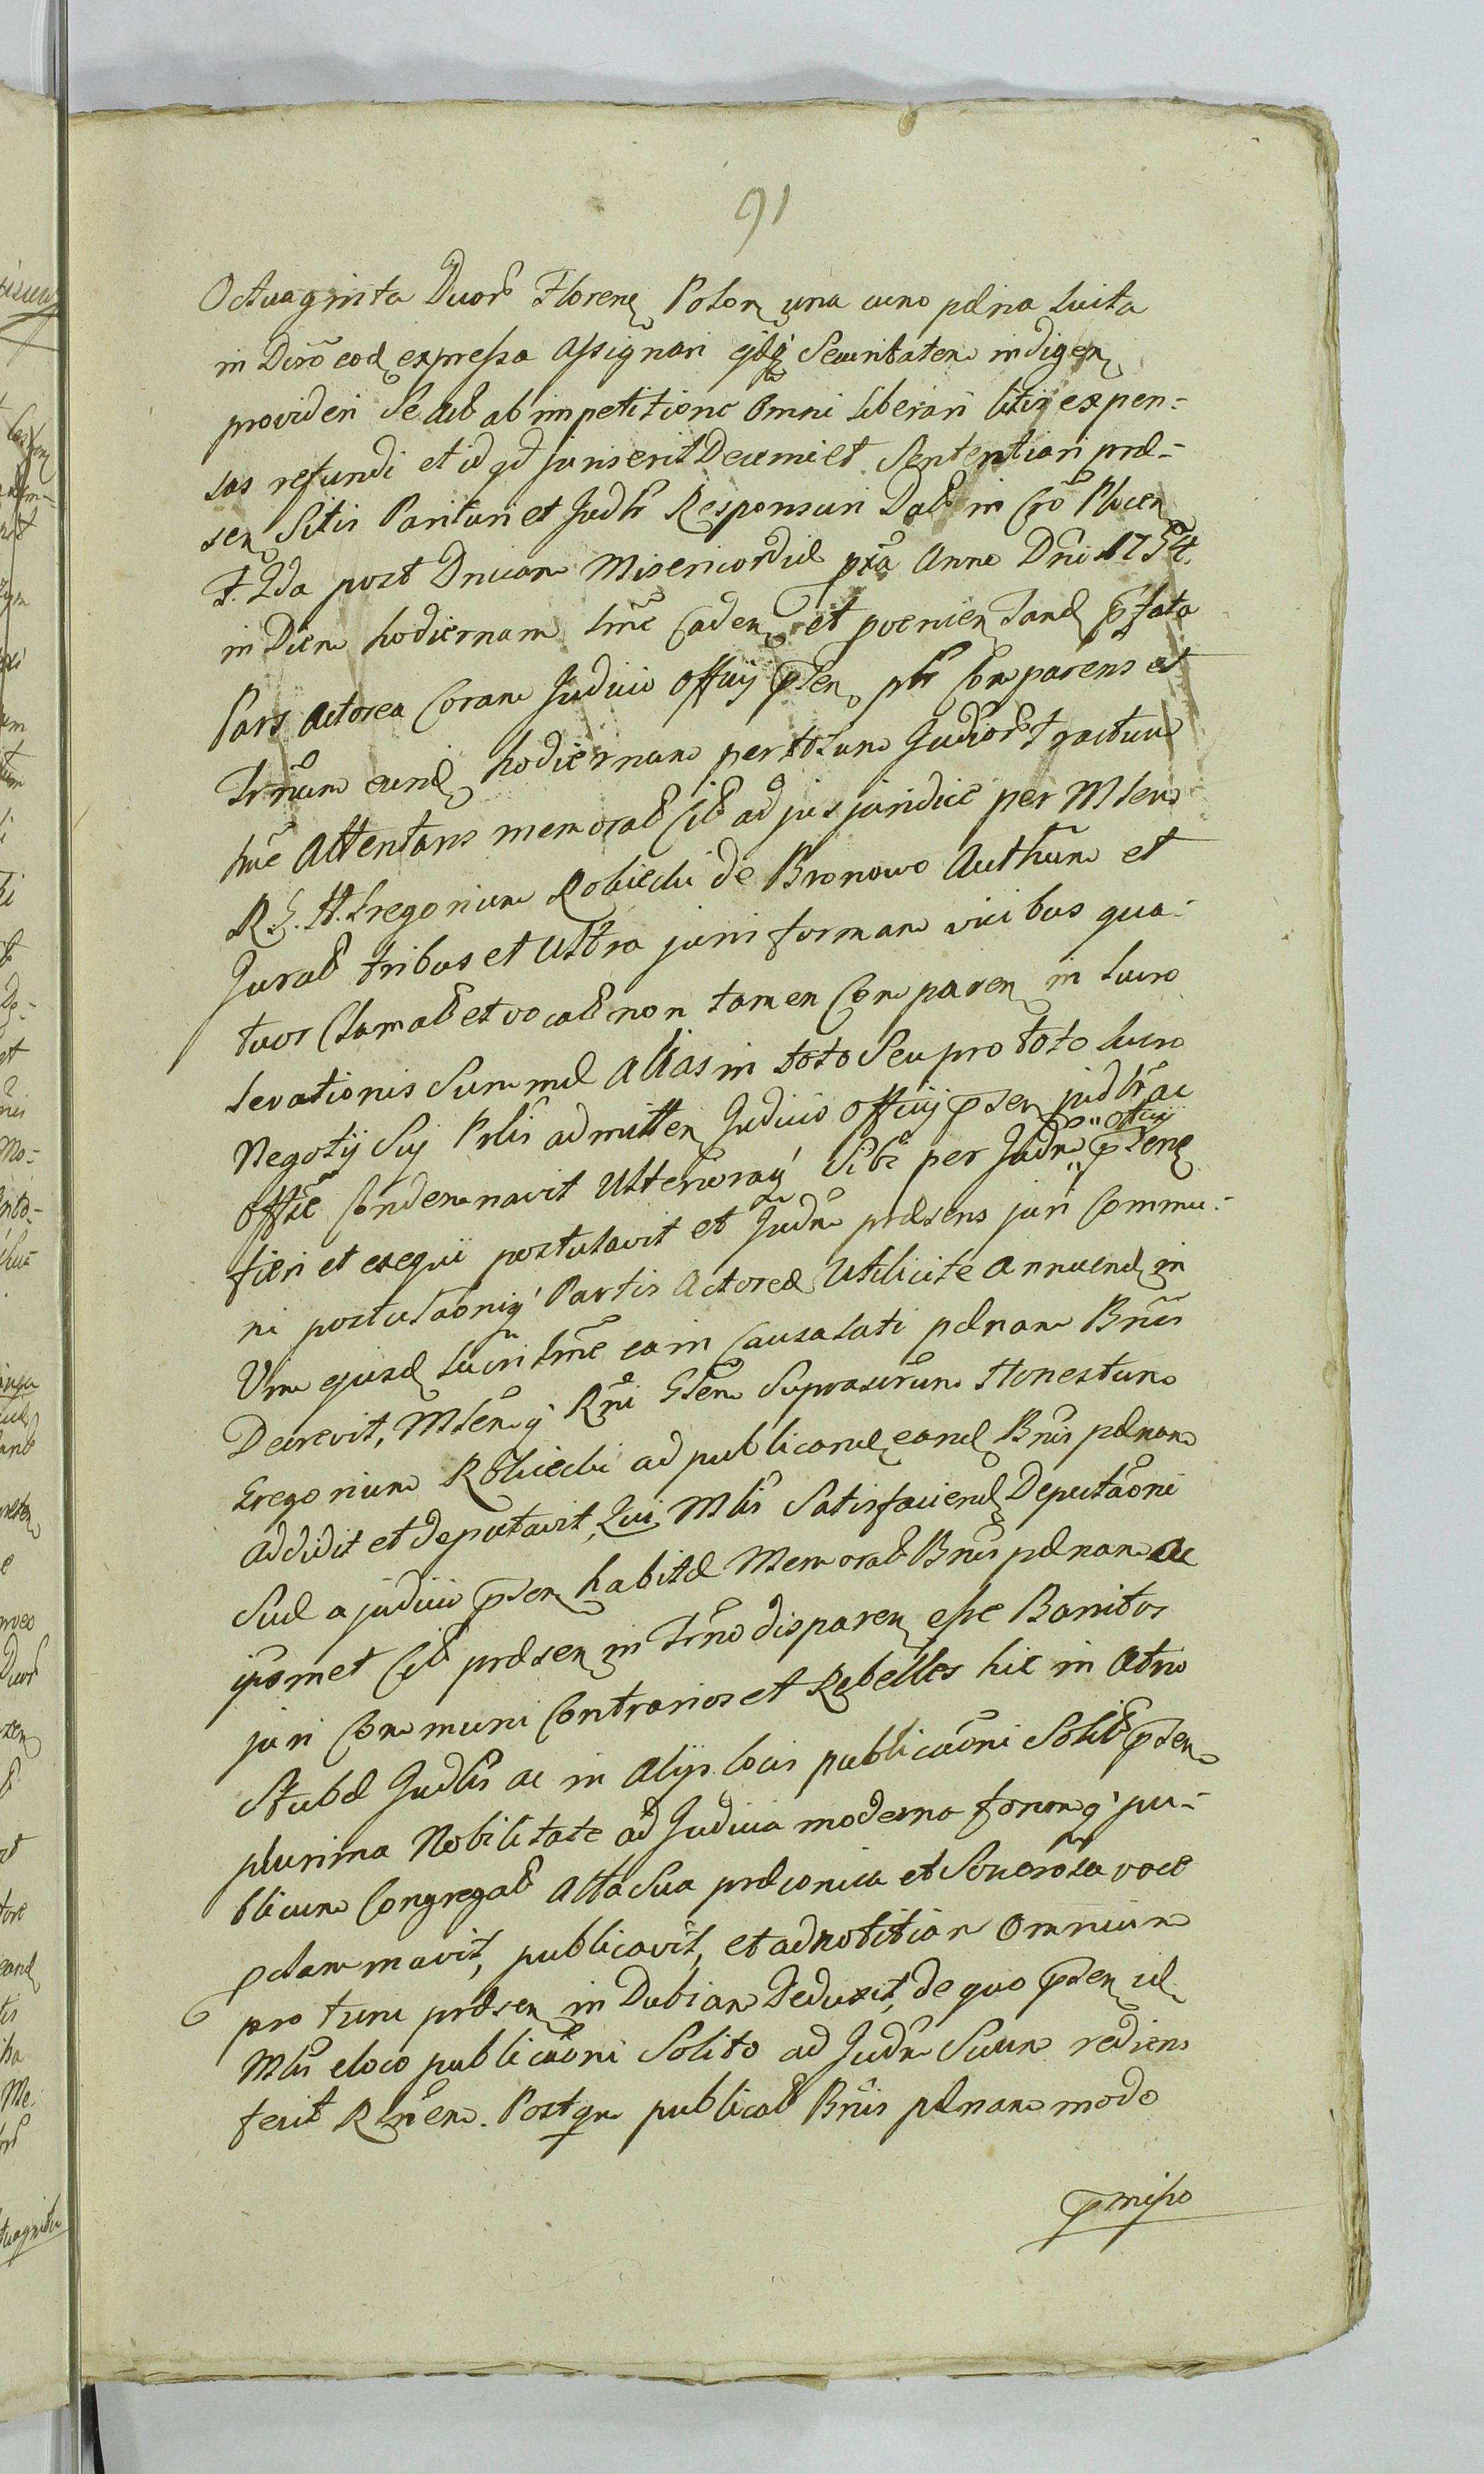 91
Octuaginta Duorb Floren Polon una cum pdna luita
in Dirō eod expressa Assignari ejdq Securitatem indigen
provideri Se aūt ab impetitione Omni liberari litis expen-
sas refundi et id qd juris erit Decerni et Sententiari præ-
sen Sitis Parituri et Judlr Responsuri Datt in Crō Plocen
F. 2da post Dnicam Misericordiæ pxa Anno Dni 1754.
in Diem hodiernam tmē Caden et provenien Tand Pfata
Pars Actorea Coram Judicio Officij Psen plr Comparens et
Trmum eund hodiernum per totum Judiorb Tractum
tmē Attentans memoratt Citt ad jus juridice per Mlem
R. G. H. Gregorium Robiecki de Bronowo Authum et
Juratt tribus et Ultra juris formam vicibus qua-
tuor Clamatt et vocatt non tamen Comparen in lucro
levationis Summæ Alias in toto Seu pro toto lucro
Negotij Sui Prlis admitten Judicio Officij Psen judlr ac
Offse Condemnavit Ulterioraq Sibi per Judm " Officij " Psens
fieri et exequi postulavit et Judm præsens juri Commu-
ni postulaonīq Partis Actoreæ Utilicite annuend in
Vim ejusd lucri tmē ea in Causa lati pdnam Bnis
Decrevit, Mlemq Rni Glem Suprascrum Honestum
Gregorium Robiecki ad publicand eand Bnis pdnam
addidit et deputavit, Qui Mlis Satisfaciend Deputaōni
Suæ a judicio Psen habitæ Memoratt Bnis pdnam ac
ipsmet Citt præsen in Trmo disparen esse Banitos
juri Communi Contrarios et Rebelles hic in Atrio
Stubæ Judlis ac in Alijs locis publicaōni Solitt Psen
plurima Nobilitate ad Judicia moderna forumq pu-
blicum Congregatt Alta Sua præconica et Sonorosa voce
pclammavit, publicavit, et ad notitiam Omnium
pro tunc præsen in Dubiam Deduxit, de quo Psen id
Mlis e loco publicaōni Solito ad Judm Suum rediens
fecit Rlnem. Postqm publicatt Bnis pdnam modo
Pmisso